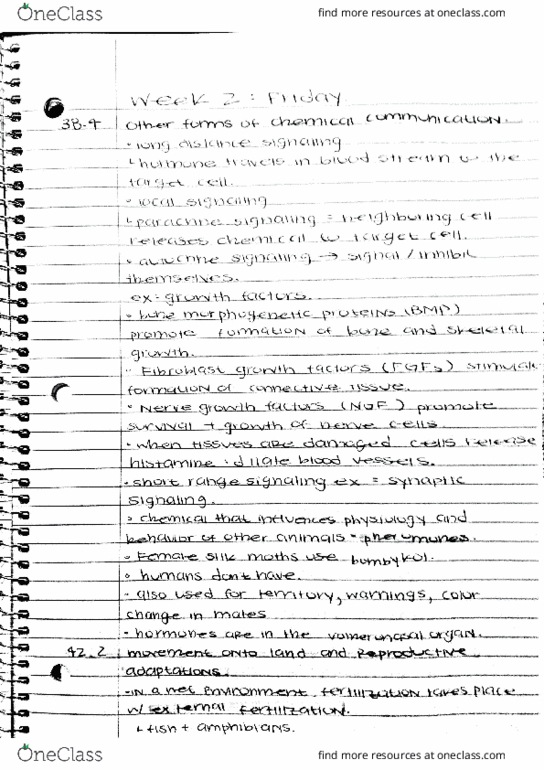 OneClass find more resources at oneclass.com
Week 2: Friday
38.4 other forms of chemical communication.
• long distance signaling
↳ hormone travels in blood stream to the
target cell.
• local signaling
↳ paracrine signaling = neighboring cell
releases chemical to target cell.
• autocrine signaling → signal/inhibit
themselves.
ex: growth factors.
• bone morphogenetic proteins (BMP)
promote formation of bone and skeletal
growth.
• Fibroblast growth factors (FGFs) stimulate
formation of connective tissue.
• Nerve growth factors (NGF) promote
survival + growth of nerve cells
• when tissues are damaged cells release
histamine: dilate blood vessels.
• short range signaling ex = synaptic
signaling.
• chemical that influences physiology and
behavior of other animals - pheromones.
• Female silk moths use bombykol.
• humans dont have.
• also used for territory, warnings, color
change in mates
• hormones are in the vomeronasal organ.
42.2 movement onto land and Reproductive
adaptations.
• in a wet environment fertilization takes place
w/ external fertilization.
↳ fish + amphibians.
OneClass find more resources at oneclass.com